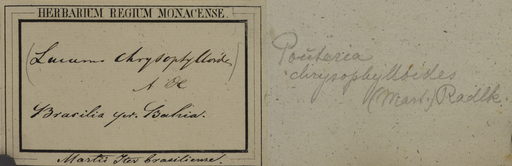 HERBARIUM REGIUM MONACENSE.
(Lucuma chrysophylloides)
A DC
Brasilia pr. Bahia.
Martii Iter brasiliense.
Pouteria
chrysophylloides
(Mart.) Radlk.